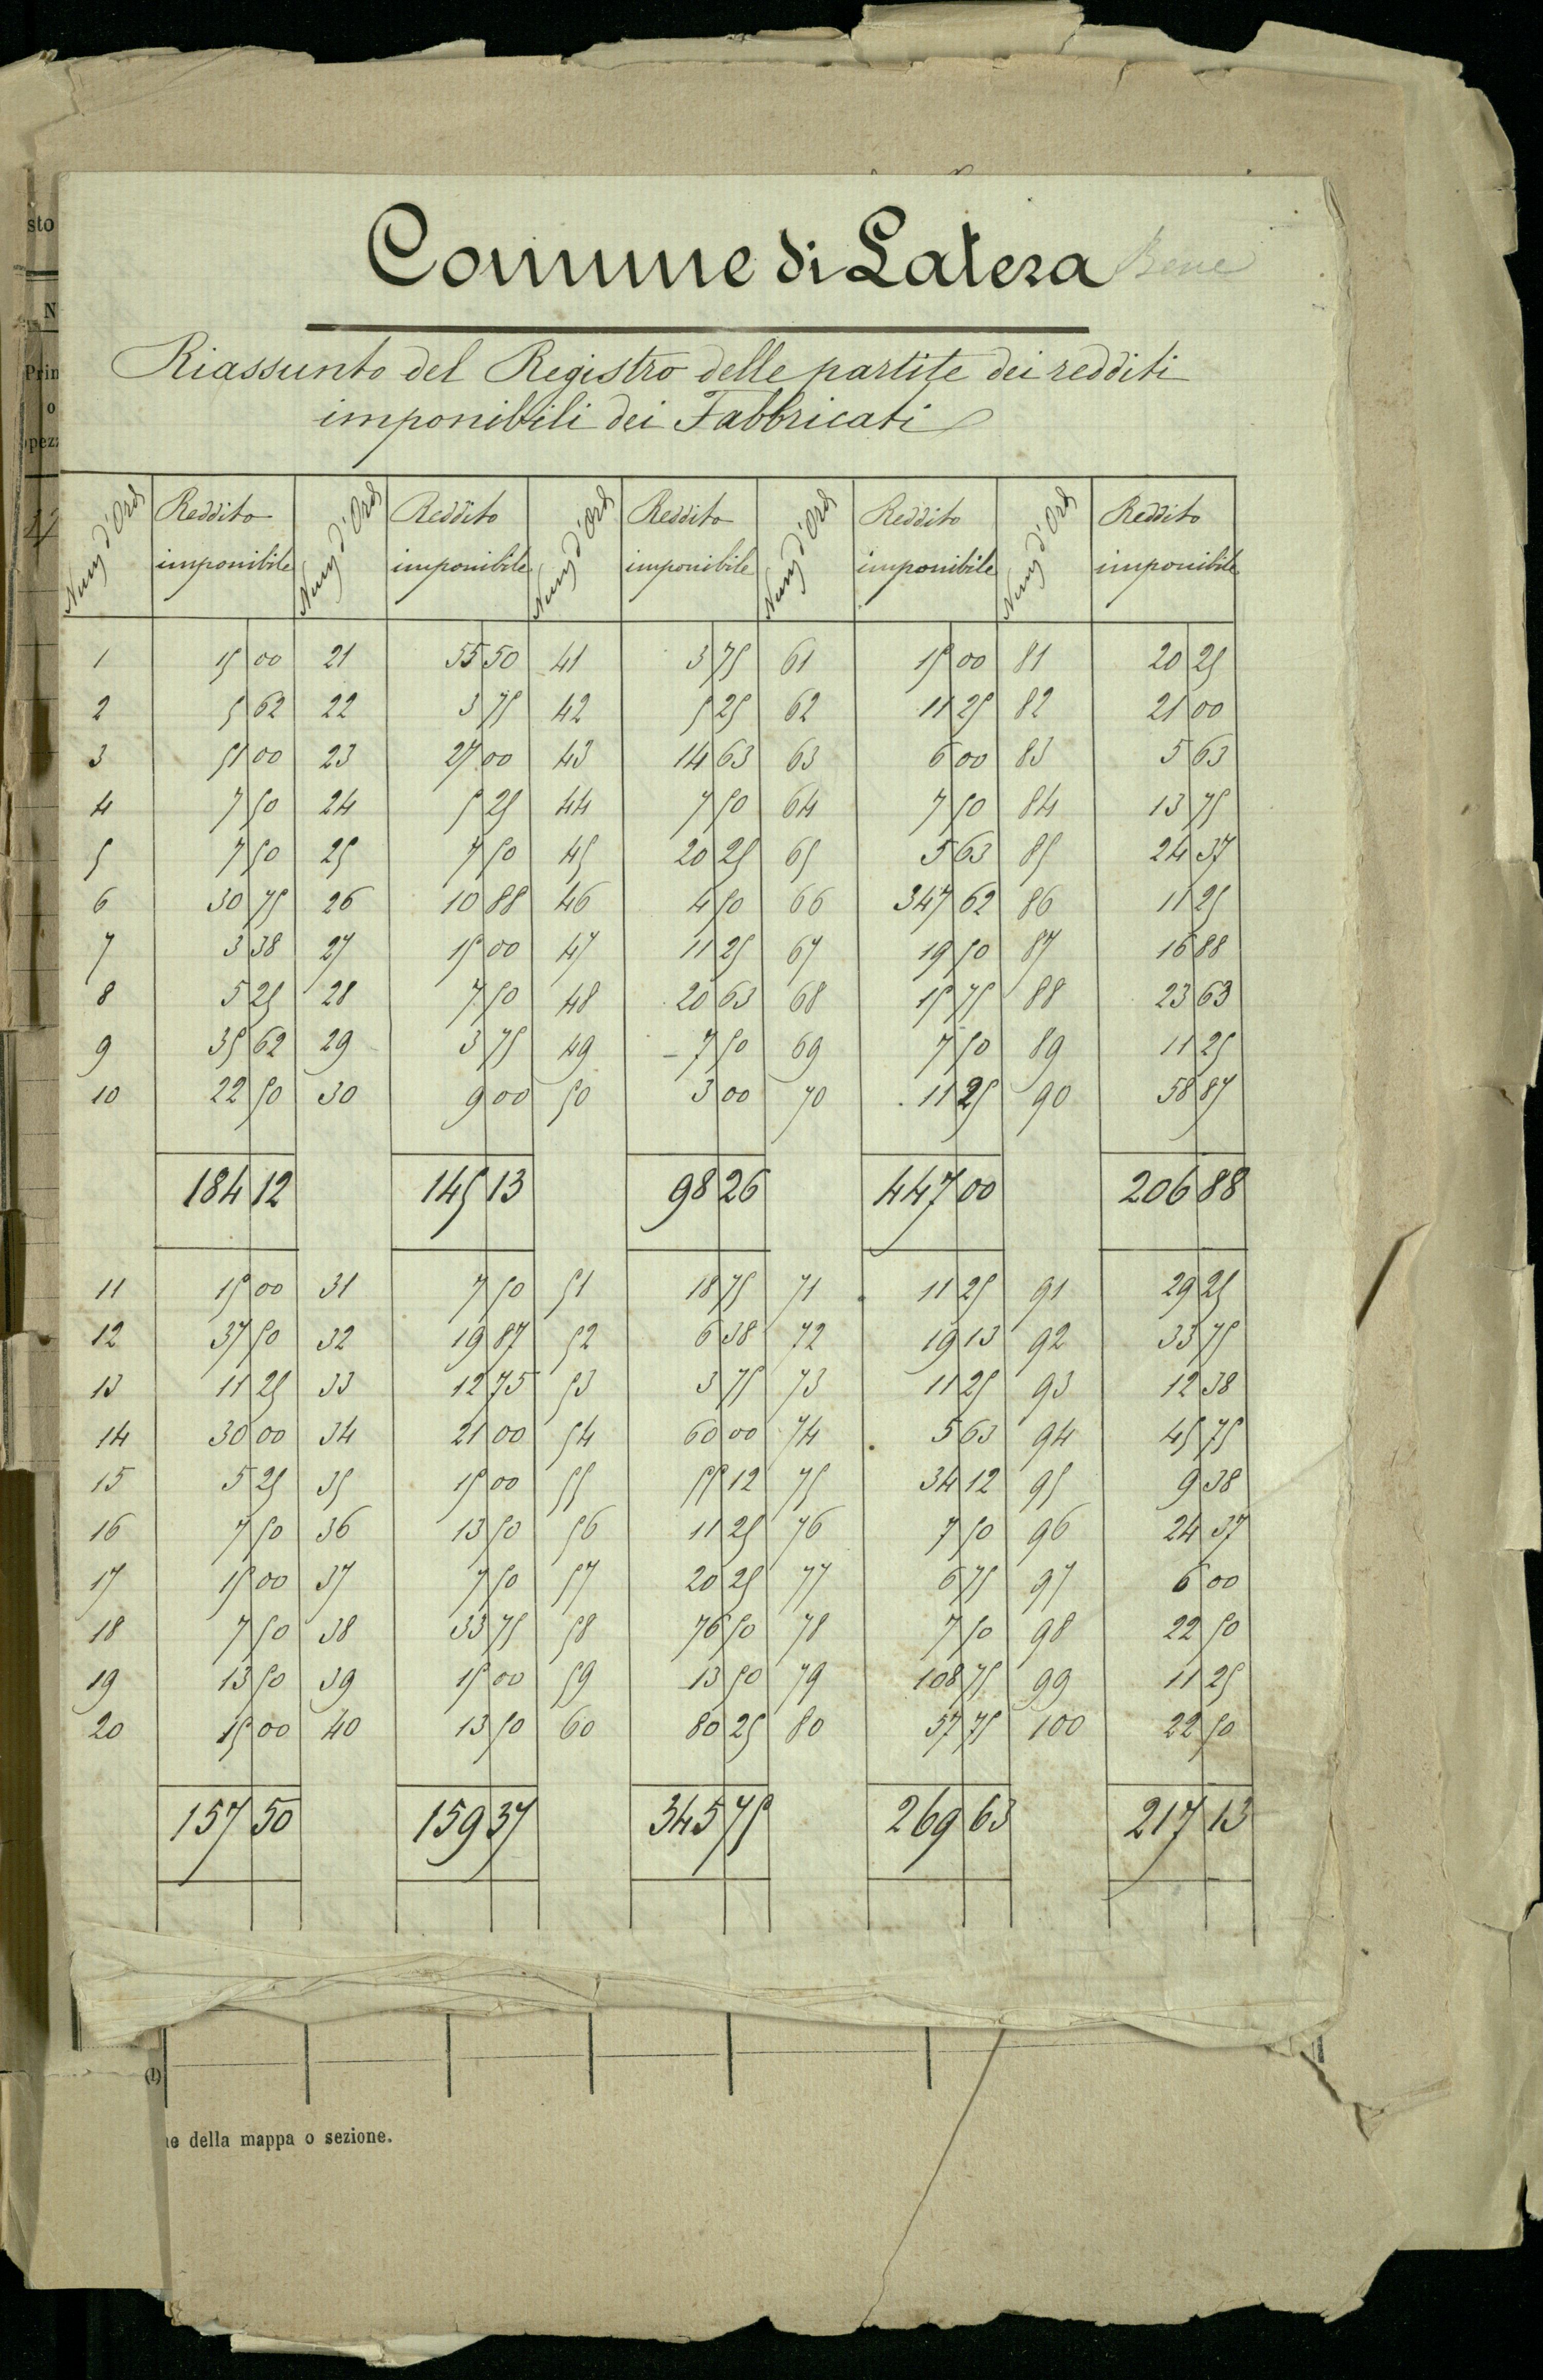 sto
N
Prin
o
pezz
Comune di Latera Bene
Riassunto del Registro delle partite dei redditi
imponibili dei Fabbricati
Num d'Ord Reddito imponibile Num d'Ord Reddito imponibile Num d'Ord Reddito imponibile Num d'Ord Reddito imponibile Num d'Ord Reddito imponibile
1 15 00 21 55 50 41 3 75 61 15 00 81 20 25
2 5 62 22 3 75 42 5 25 62 11 25 82 21 00
3 51 00 23 27 00 43 14 63 63 6 00 83 5 63
4 7 50 24 5 25 44 7 50 64 7 50 84 13 75
5 7 50 25 7 50 45 20 25 65 5 63 85 24 37
6 30 75 26 10 88 46 4 50 66 347 62 86 11 25
7 3 38 27 15 00 47 11 25 67 19 50 87 16 88
8 5 25 28 7 50 48 20 63 68 15 75 88 23 63
9 35 62 29 3 75 49 7 50 69 7 50 89 11 25
10 22 50 30 9 00 50 3 00 70 11 25 90 58 87
184 12 145 13 98 26 447 00 206 88
11 15 00 31 7 50 51 18 75 71 11 25 91 29 25
12 37 50 32 19 87 52 6 38 72 19 13 92 33 75
13 11 25 33 12 75 53 3 75 73 11 25 93 12 38
14 30 00 34 21 00 54 60 00 74 5 63 94 45 75
15 5 25 35 15 00 55 55 12 75 34 12 95 9 38
16 7 50 36 13 50 56 11 25 76 7 50 96 24 37
17 15 00 37 7 50 57 20 25 77 6 75 97 6 00
18 7 50 38 33 75 58 76 50 78 7 50 98 22 50
19 13 50 39 15 00 59 13 50 79 108 75 99 11 25
20 15 00 40 13 50 60 80 25 80 57 75 100 22 50
157 50 159 37 345 75 269 63 217 13
(1)
ne della mappa o sezione.